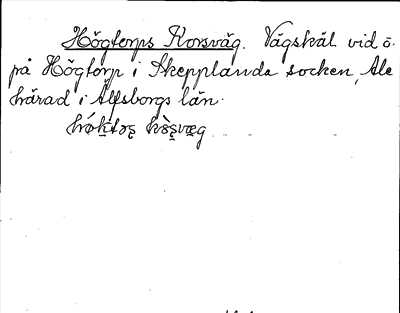 Högtorps Korsväg. Vägskäl vid ö.
på Högtorp i Skepplanda socken, Ale
härad i Älfsborgs län.